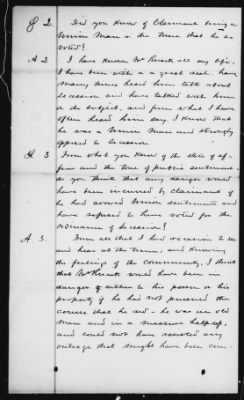 Q 2. Did you know of Claimant being a
Union Man at the time that he so
voted?
A 2 I have known Mr all my life.
I have been with a a great deal, have
many times heard him talk about
Secession and have talked with him
on the subject, and from what I have
often heard him say I know that
he was a Union Man and strongly
opposed to Secession
Q. 3 From what you knew of the state of af-
fairs and the tone of public sentiment
do you think that any danger would
have been incurred by Claimant if
he had avowed Union sentiments and
have refused to have voted for the
Ordinance of Secession?
A 3. From all that I had occasion to see
and hear at the time, and knowing
the feelings of the community, I think
that Mr would have been in
danger of either to his person or his
property if he had not pursued the
course that he did - he was an old
man and in a measure helpless,
and could not have resisted any
outrage that might have been com-